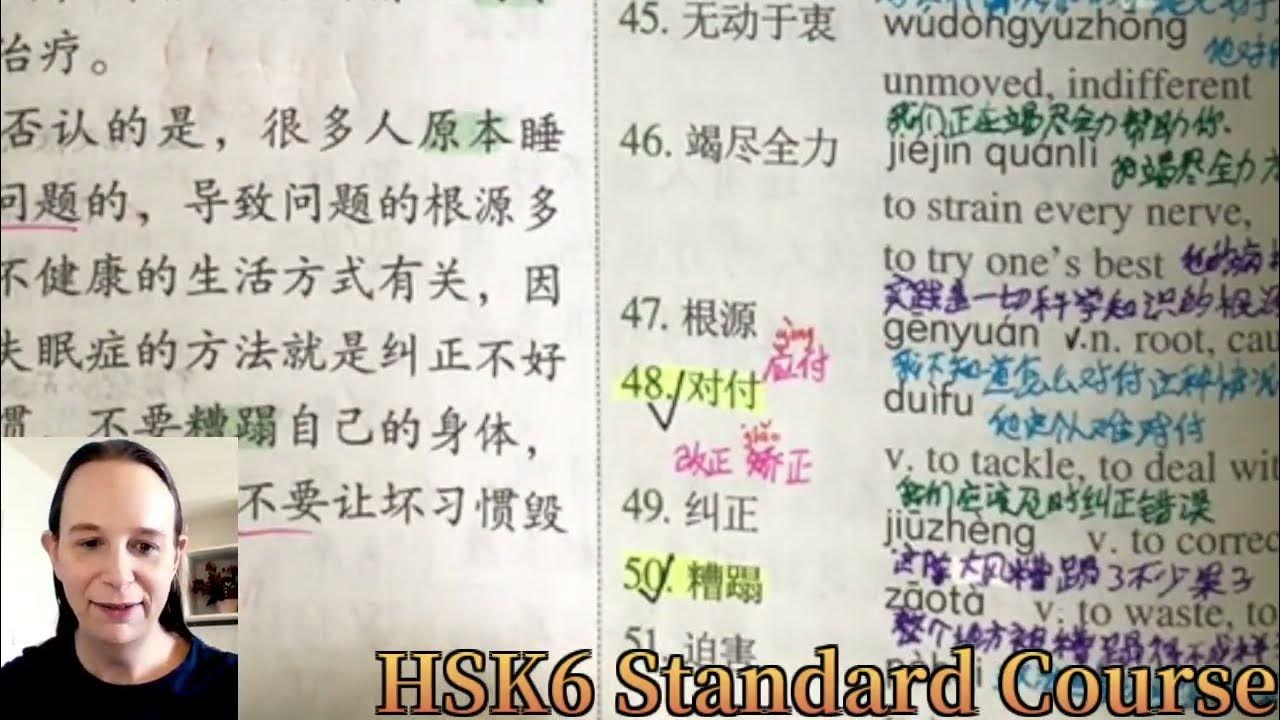 治疗。
否认的是，很多人原本睡
问题的，导致问题的根源多
不健康的生活方式有关，因
失眠症的方法就是纠正不好
惯，不要糟蹋自己的身体，
不要让坏习惯毁
45. 无动于衷 wúdòngyúzhōng
unmoved, indifferent
我们正在竭尽全力帮助你.
46. 竭尽全力 jiéjìn quánlì
竭尽全力
to strain every nerve,
to try one's best
他的病
实践是一切科学知识的根源
47. 根源 gēnyuán ✓.n. root, cau
yìng
应付
我不知道怎么对付这种情况
48. ✓ 对付 duìfu
他这个人难对付
v. to tackle, to deal wit
jiǎo
改正 矫正
我们应该及时纠正错误
49. 纠正 jiūzhèng v. to correc
这阵大风糟蹋了不少果子
50. ✓ 糟蹋 zāotà v. to waste, to
整个地方被糟蹋得不成样
51. 迫害
HSK6 Standard Course